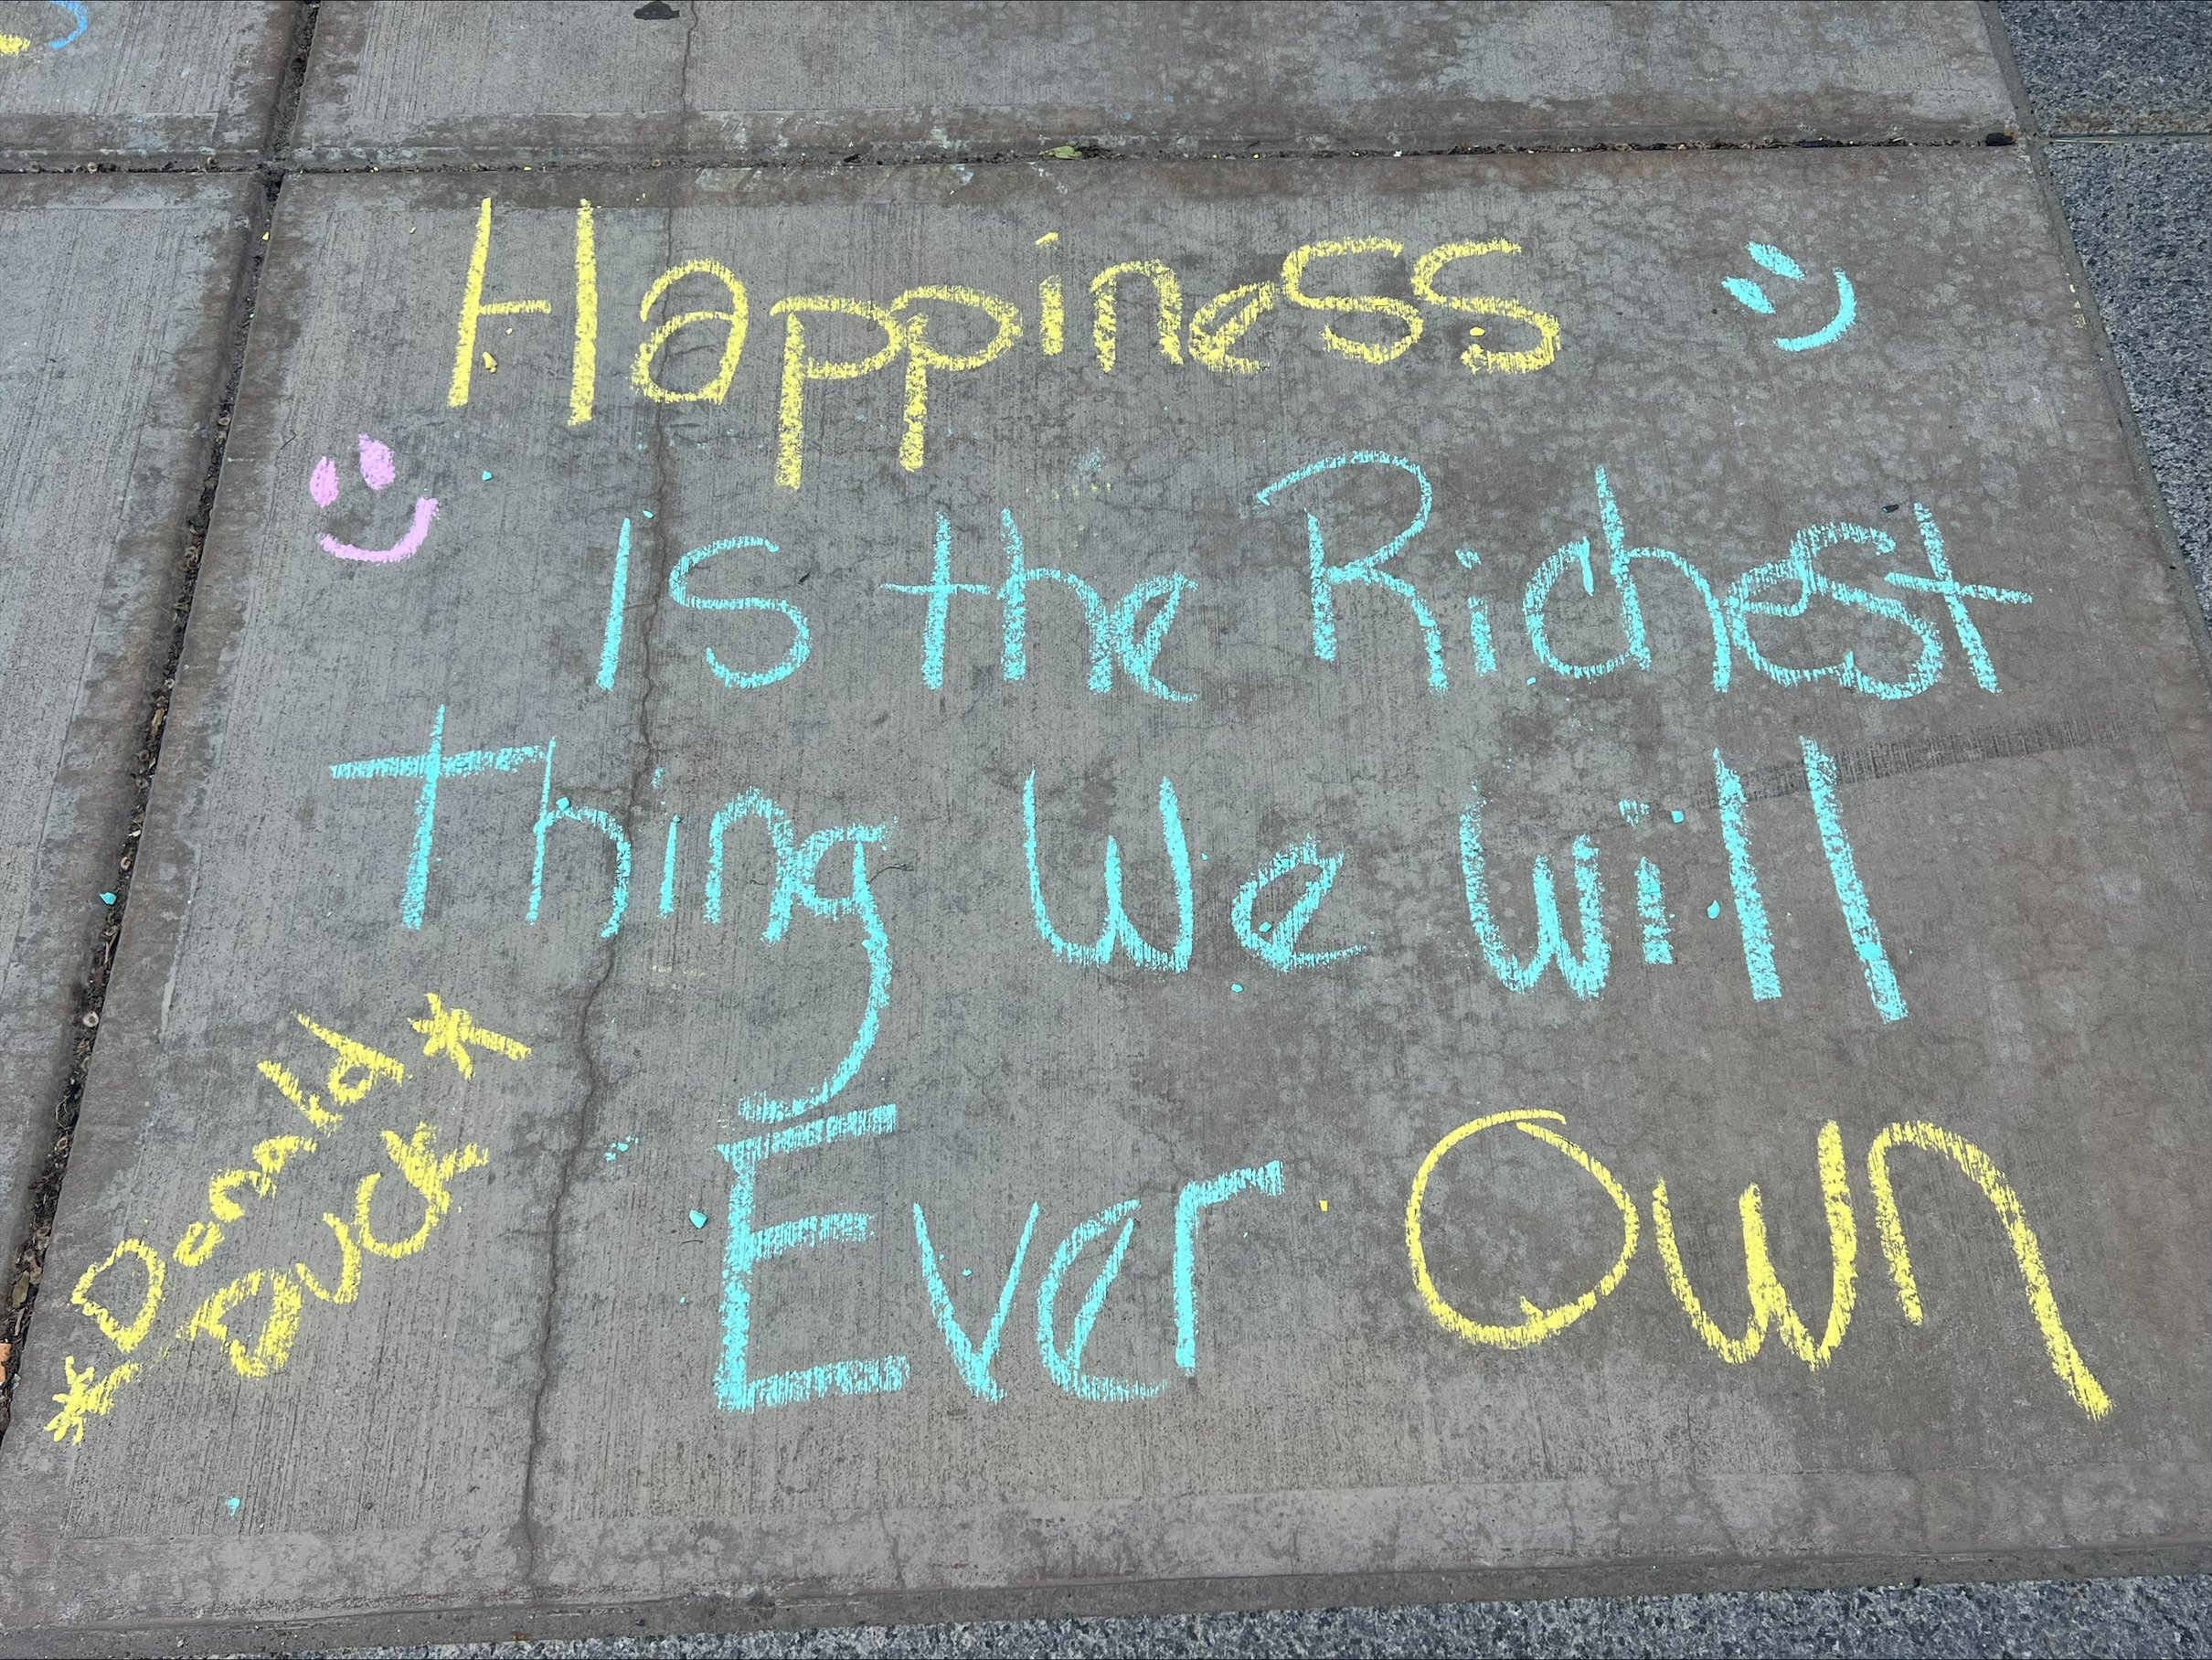 Happiness
is the Richest
Thing We will
Ever Own
*Donald
Duck*